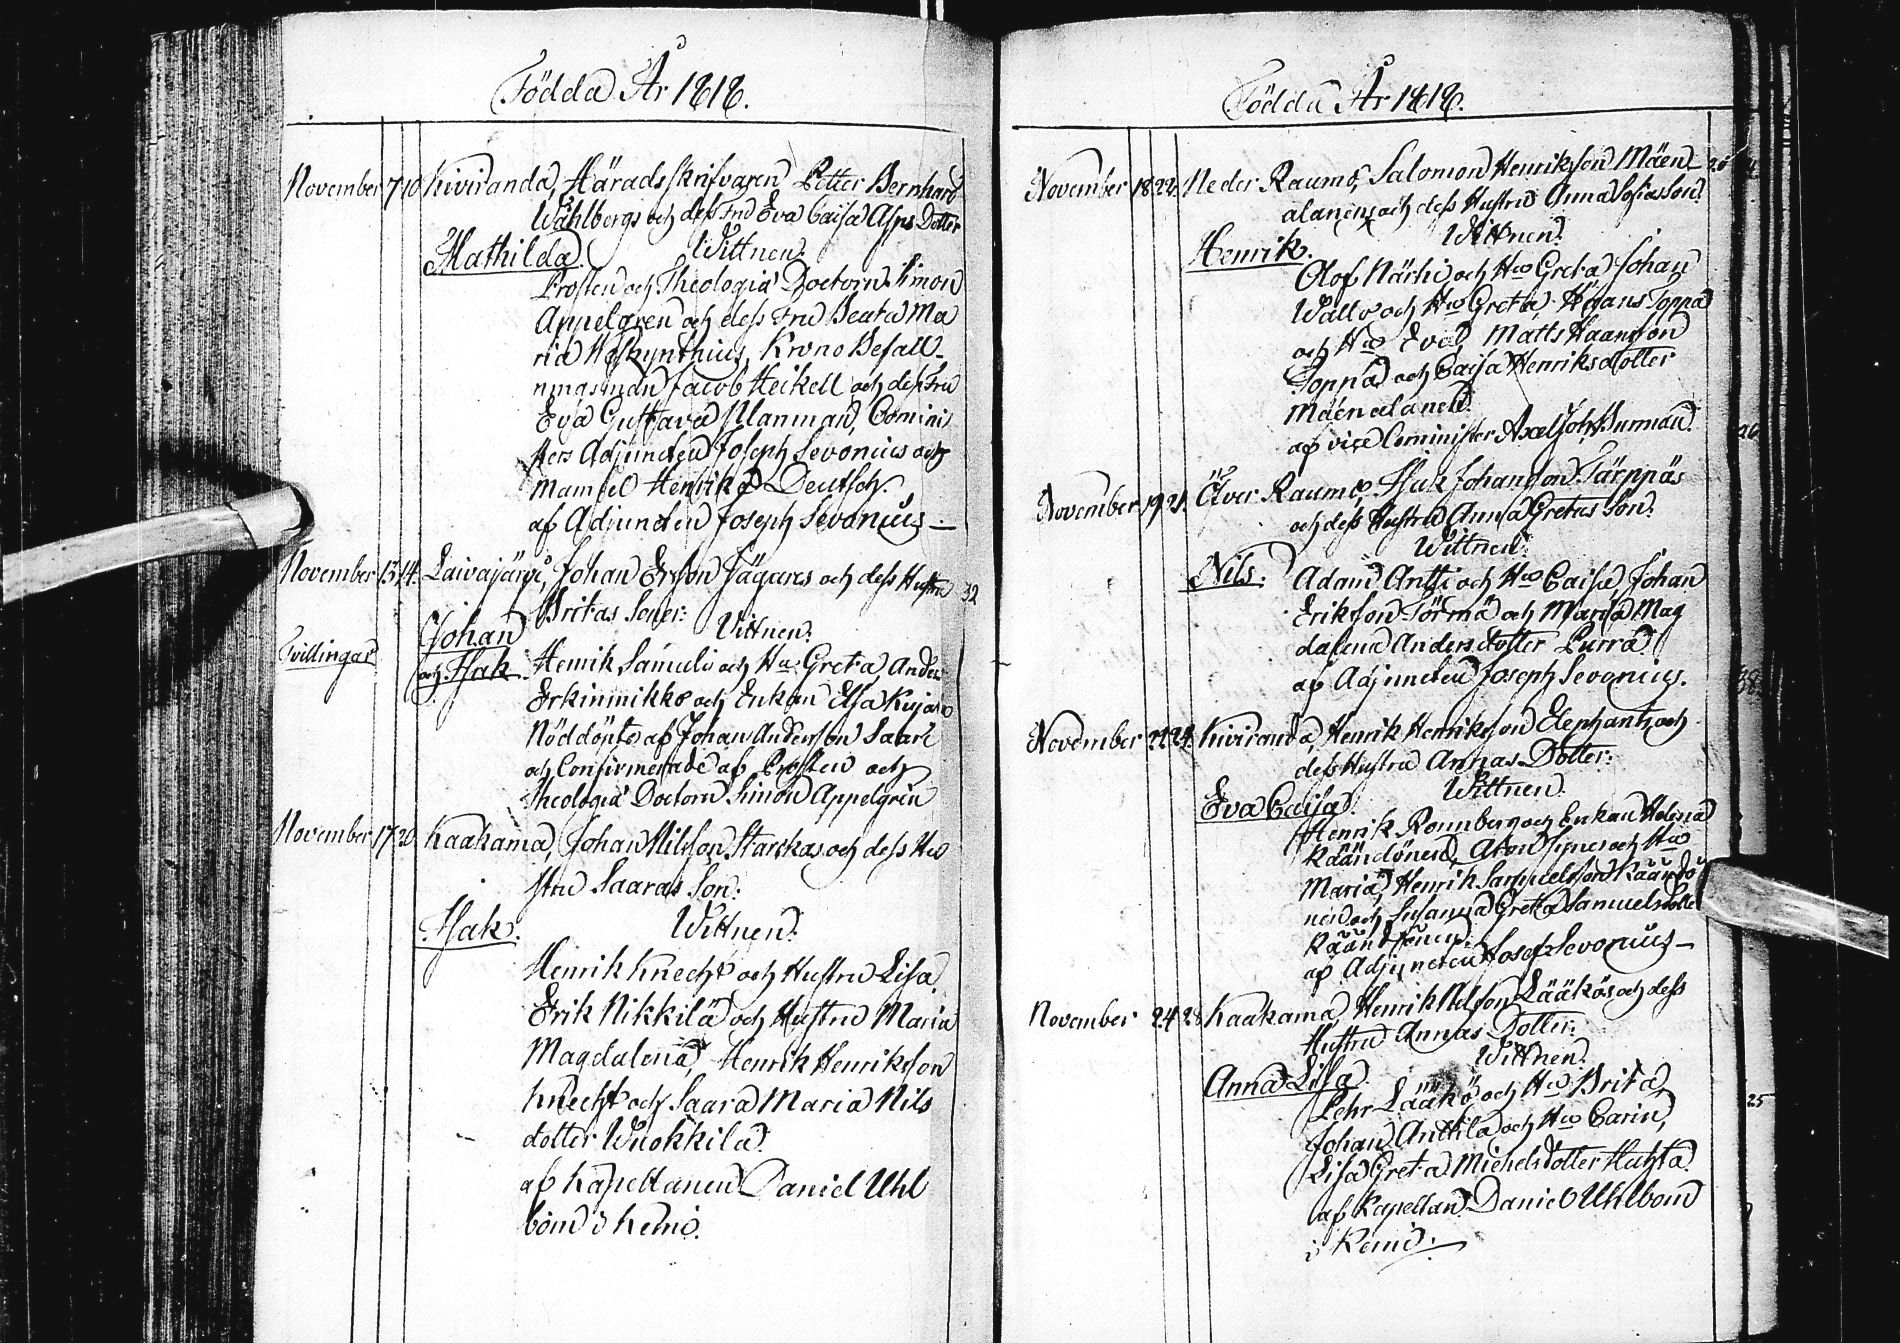 Födda År 1818.
November 7 10 Kiviranda, Häradsskrifvaren Petter Bernhard
Wählbergs och dess Fru Eva Caisa Asps Dotter
Mathilda. Wittnen.
Prosten och Theologiä Doctorn Simon
Appelgren och dess Fru Beata Ma
ria Kronobefall-
ningsman Jacob Heikell och dess Fru
Eva Gustava Comini
sters Adjuncten Joseph Sevonius och
Mamsel Henrika Deutsch.
af Adjuncten Joseph Sevonius
November 13 14. Laivajärvi, Johan Ersson Jägares och dess Hustru 32
Britas Söner: Wittnen.
Johan
Tvillingar
och Isak. Henrik Samuli och Hu Greta, Anders
Erkinmikko och Enkan Elsa
Nöddöpte af Johan Andersson Saari
och Confirmerade af Prosten och
Theologiä Doctorn Simon Appelgren
November 17 20 Kaakama, Johan Nilsson Starckas och dess Hu
stru Saaras Son:
Isak. Wittnen.
Henrik Knecht och Hustru Lisa.
Erik Nikkilä och Hustru Maria
Magdalena, Henrik Henriksson
Knecht och Saara Maria Nils
dotter Wuokkila.
af Kapellanen Daniel Uhl
bom i Kemi.
Födda År 1818.
November 18 22. Neder Raumo, Salomon Henriksson Mäen-
alanens och dess Hustru Annas Son.
Wittnen.
Henrik.
Olof Närhi och Hu Greta Johan
Wallo och Hu Greta, Toppa
och Hu Eva Matts
Toppa och Caisa Henriksdotter
Mäenalanen.
af vice Cominister Axel Joh. Burman. 26
November 19 21. Öfver Raumo, Isak Johansson Tärppäs
och dess Hustru Anna Gretas Son.
Wittnen.
Nils. Adam Antti och Hu Caisa, Johan
Eriksson Törmä och Maria Mag
dalena Andersdotter Purra
af Adjuncten Joseph Sevonius. 38
November 22 24. Kiviranda, Henrik Henriksson Elephants och
dess Hustru Annas Dotter:
Wittnen.
Eva Caisa.
Henrik Rönnberg och Enkan Helena
Käändönen, Aron Signes och Hu
Maria, Henrik Samuelsson Käändö
nen och Susanna Greta Samuelsdotter
Käändönen.
af Adjuncten Josef Sevonius
November 24 28 Kaakama, Henrik Nilsson Lääkös och dess
Hustru Annas Dotter:
Wittnen.
Anna Lisa.
Pehr Lääkö och Hu Brita,
Johan Anttila och Hu Carin, 25
Lisa Greta Michelsdotter Huhta.
af Kapellan Daniel Uhlbom
i Kemi.